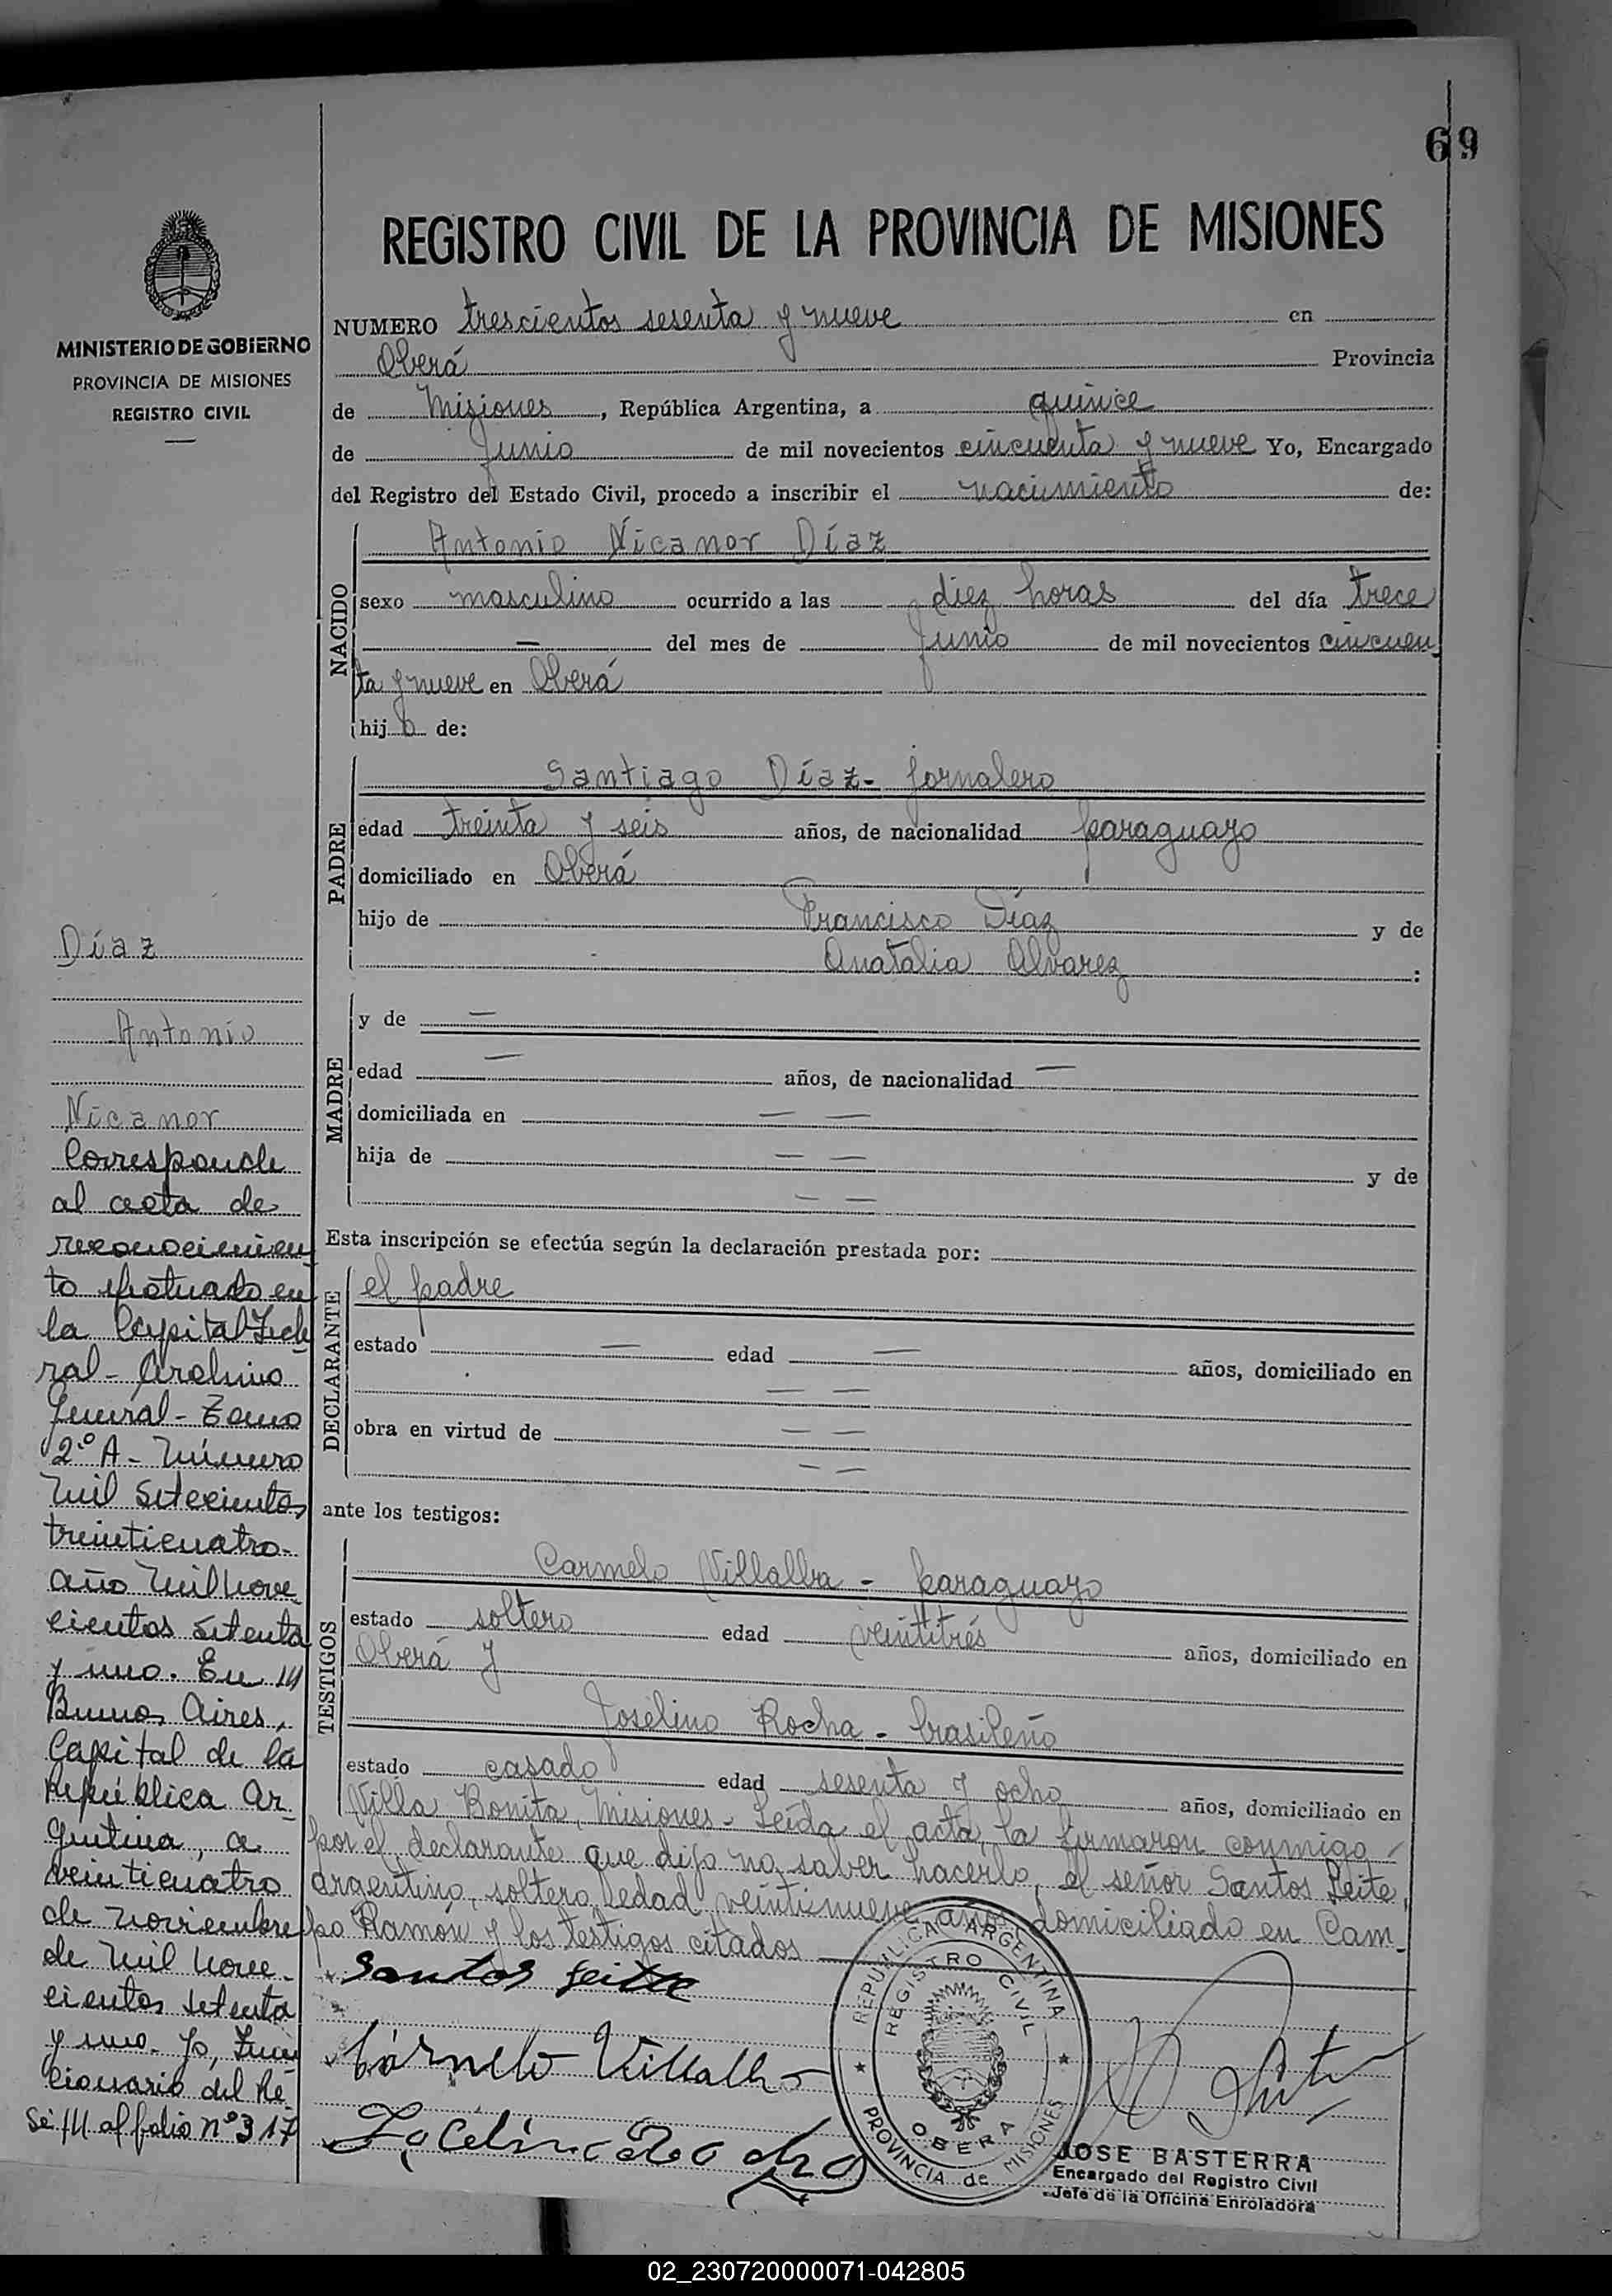 69
REGISTRO CIVIL DE LA PROVINCIA DE MISIONES
MINISTERIO DE GOBIERNO
PROVINCIA DE MISIONES
REGISTRO CIVIL
NUMERO trescientos sesenta y nueve en
Oberá Provincia
de Misiones, República Argentina, a quince
de Junio de mil novecientos cincuenta y nueve Yo, Encargado
del Registro del Estado Civil, procedo a inscribir el nacimiento de:
NACIDO
Antonio Nicanor Díaz
sexo masculino ocurrido a las diez horas del día trece
— del mes de Junio de mil novecientos cincuen
ta y nueve en Oberá
hijo de:
PADRE
Santiago Díaz - Jornalero
edad treinta y seis años, de nacionalidad paraguayo
domiciliado en Oberá
hijo de Francisco Díaz y de
Anatalia Alvarez :
MADRE
y de —
edad — años, de nacionalidad —
domiciliada en — —
hija de — — y de
— —
Esta inscripción se efectúa según la declaración prestada por:
DECLARANTE
el padre
estado — edad — años, domiciliado en
— —
obra en virtud de — —
— —
ante los testigos:
TESTIGOS
Carmelo Villalba - paraguayo
estado soltero edad veintitrés años, domiciliado en
Oberá y
Joselino Rocha - brasileño
estado casado edad sesenta y ocho años, domiciliado en
Villa Bonita, Misiones - Leída el acta, la firmaron conmigo
por el declarante que dijo no saber hacerlo, el señor Santos Leite,
argentino, soltero, edad veintinueve años, domiciliado en Cam
po Ramón y los testigos citados
Santos Leite
Cármelo Villalba
REPUBLICA ARGENTINA
REGISTRO CIVIL
OBERA
PROVINCIA de MISIONES
JOSE BASTERRA
Encargado del Registro Civil
Jefe de la Oficina Enroladora
Díaz
Antonio
Nicanor
Corresponde
al acta de
reconocimien
to efectuado en
la Capital Fede
ral - Archivo
General - Tomo
2º A - Número
mil setecientos
treinticuatro -
año mil nove
cientos setenta
y uno. En
Buenos Aires,
Capital de la
República Ar
gentina, a
veinticuatro
de noviembre
de mil nove
cientos setenta
y uno. Yo, Fun
cionario del Re
al folio nº 317
02_230720000071-042805